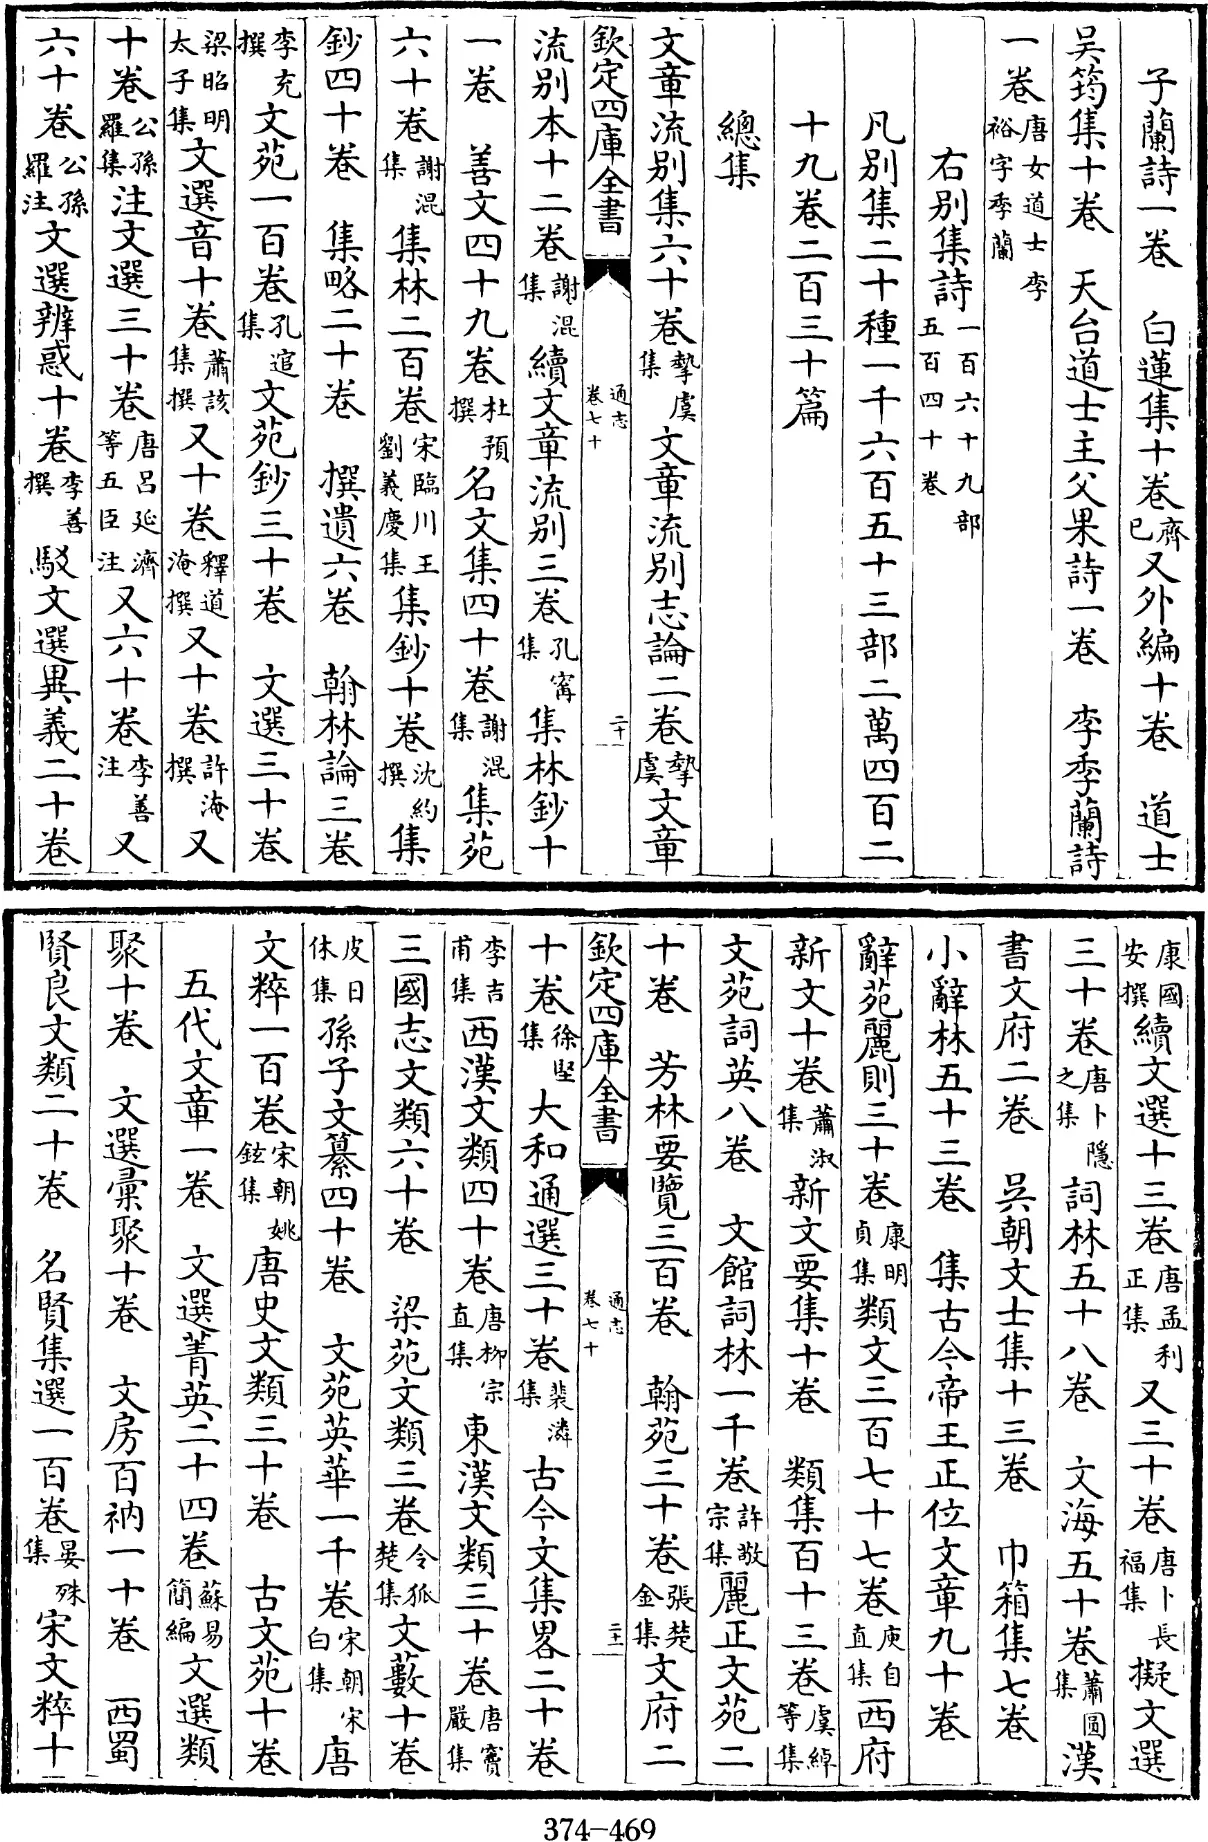 子蘭詩一卷　白蓮集十卷齊己又外編十卷　道士
吳筠集十卷　天台道士主父果詩一卷　李季蘭詩
一卷唐女道士李裕字季蘭
右别集詩一百六十九部五百四十卷
凡别集二十種一千六百五十三部二萬四百二
十九卷二百三十篇
總集
文章流别集六十卷摯虞集文章流别志論二卷摯虞文章
欽定四庫全書　通志卷七十　二十
流别本十二卷謝混集續文章流别三卷孔甯集集林鈔十
一卷　善文四十九卷杜預撰名文集四十卷謝混集集苑
六十卷謝混集集林二百卷宋臨川王劉義慶集集鈔十卷沈約撰集
鈔四十卷　集略二十卷　撰遺六卷　翰林論三卷
李充撰文苑一百卷孔逭集文苑鈔三十卷　文選三十卷
梁昭明太子集文選音十卷蕭該集撰又十卷釋道淹撰又十卷許淹撰又
十卷公孫羅集注文選三十卷唐呂延濟等五臣注又六十卷李善注又
六十卷公孫羅注文選辨惑十卷李善撰駁文選異義二十卷
康國安撰續文選十三卷唐孟利正集又三十卷唐卜長福集擬文選
三十卷唐卜隱之集詞林五十八卷　文海五十卷蕭圓集漢
書文府二卷　吳朝文士集十三卷　巾箱集七卷
小辭林五十三卷　集古今帝王正位文章九十卷
辭苑麗則三十卷康明貞集類文三百七十七卷庾自直集西府
新文十卷蕭淑集新文要集十卷　類集百十三卷虞綽等集
文苑詞英八卷　文館詞林一千卷許敬宗集麗正文苑二
十卷　芳林要覽三百卷　翰苑三十卷張楚金集文府二
欽定四庫全書　通志卷七十　二十一
十卷徐堅集大和通選三十卷裴潾集古今文集畧二十卷
李吉甫集西漢文類四十卷唐柳宗直集東漢文類三十卷唐竇嚴集
三國志文類六十卷　梁苑文類三卷令狐楚集文藪十卷
皮日休集孫子文纂四十卷　文苑英華一千卷宋朝宋白集唐
文粹一百卷宋朝姚鉉集唐史文類三十卷　古文苑十卷
五代文章一卷　文選菁英二十四卷蘇易簡編文選類
聚十卷　文選彙聚十卷　文房百衲一十卷　西蜀
賢良文類二十卷　名賢集選一百卷晏殊集宋文粹十
374-469